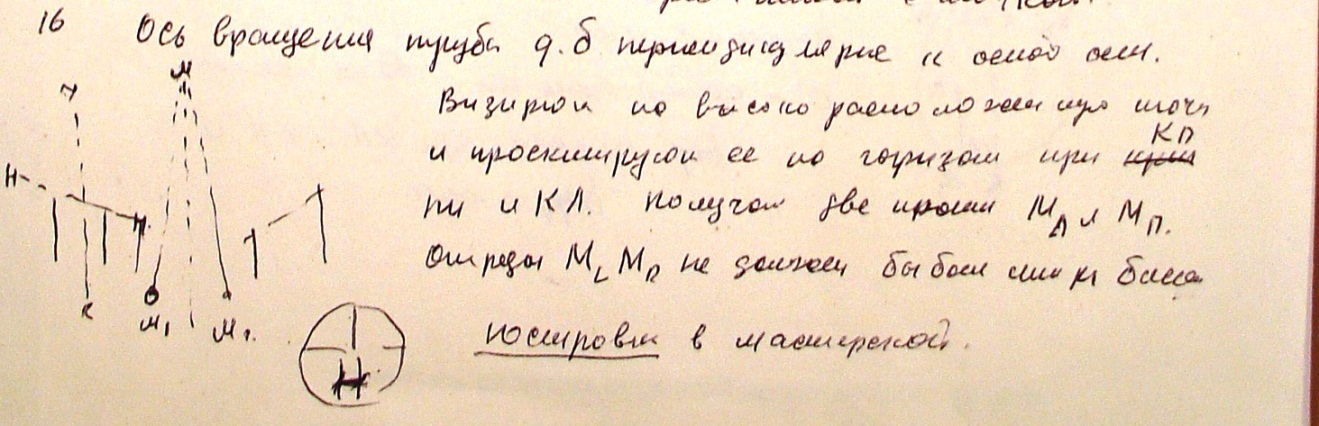 16 Ось вращения трубы д.б. перпендикулярна к осной оси.
Визируем на высоко расположенную точку
и проектируем ее на горизонт при КП
и КЛ. Получаем две точки М Л и М П.
Отрезок М L М П не должен бы больш
Юстировка в мастерской.
M
Н
М1
М2
Н